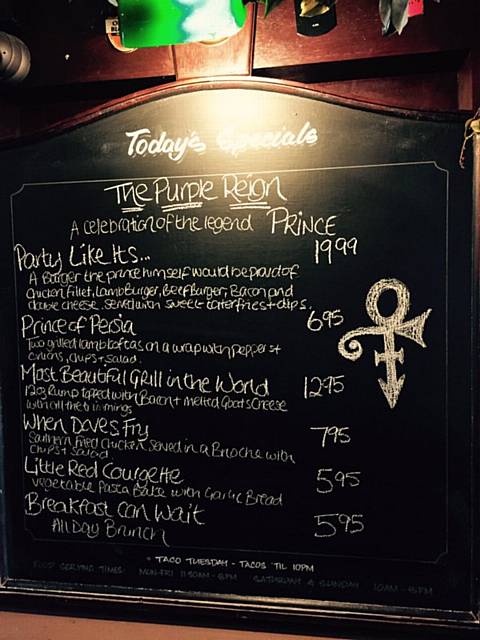 Today's Specials
The Purple Reign
A celebration of the legend PRINCE
Party Like Its... 19.99
A Burger the prince himself would be proud of
Chicken Fillet, Lamb Burger, Beef Burger, Bacon and
double cheese. Served with sweet tater fries + dips.
Prince of Persia 6.95
Two grilled lamb koftas on a wrap with peppers +
onions, chips + salad.
Most Beautiful Grill in the World 12.95
12oz Rump topped with Bacon + melted Goats Cheese
with all the trimmings
When Doves Fry 7.95
Southern Fried chicken served in a Brioche with
chips + salad.
Little Red Courgette 5.95
vegetable Pasta Bake with Garlic Bread
Breakfast can wait 5.95
All Day Brunch
TACO TUESDAY - TACOS 'TIL 10PM
FOOD SERVING TIMES: MON-FRI 11:30AM - 8PM SATURDAY & SUNDAY 10AM - 8PM